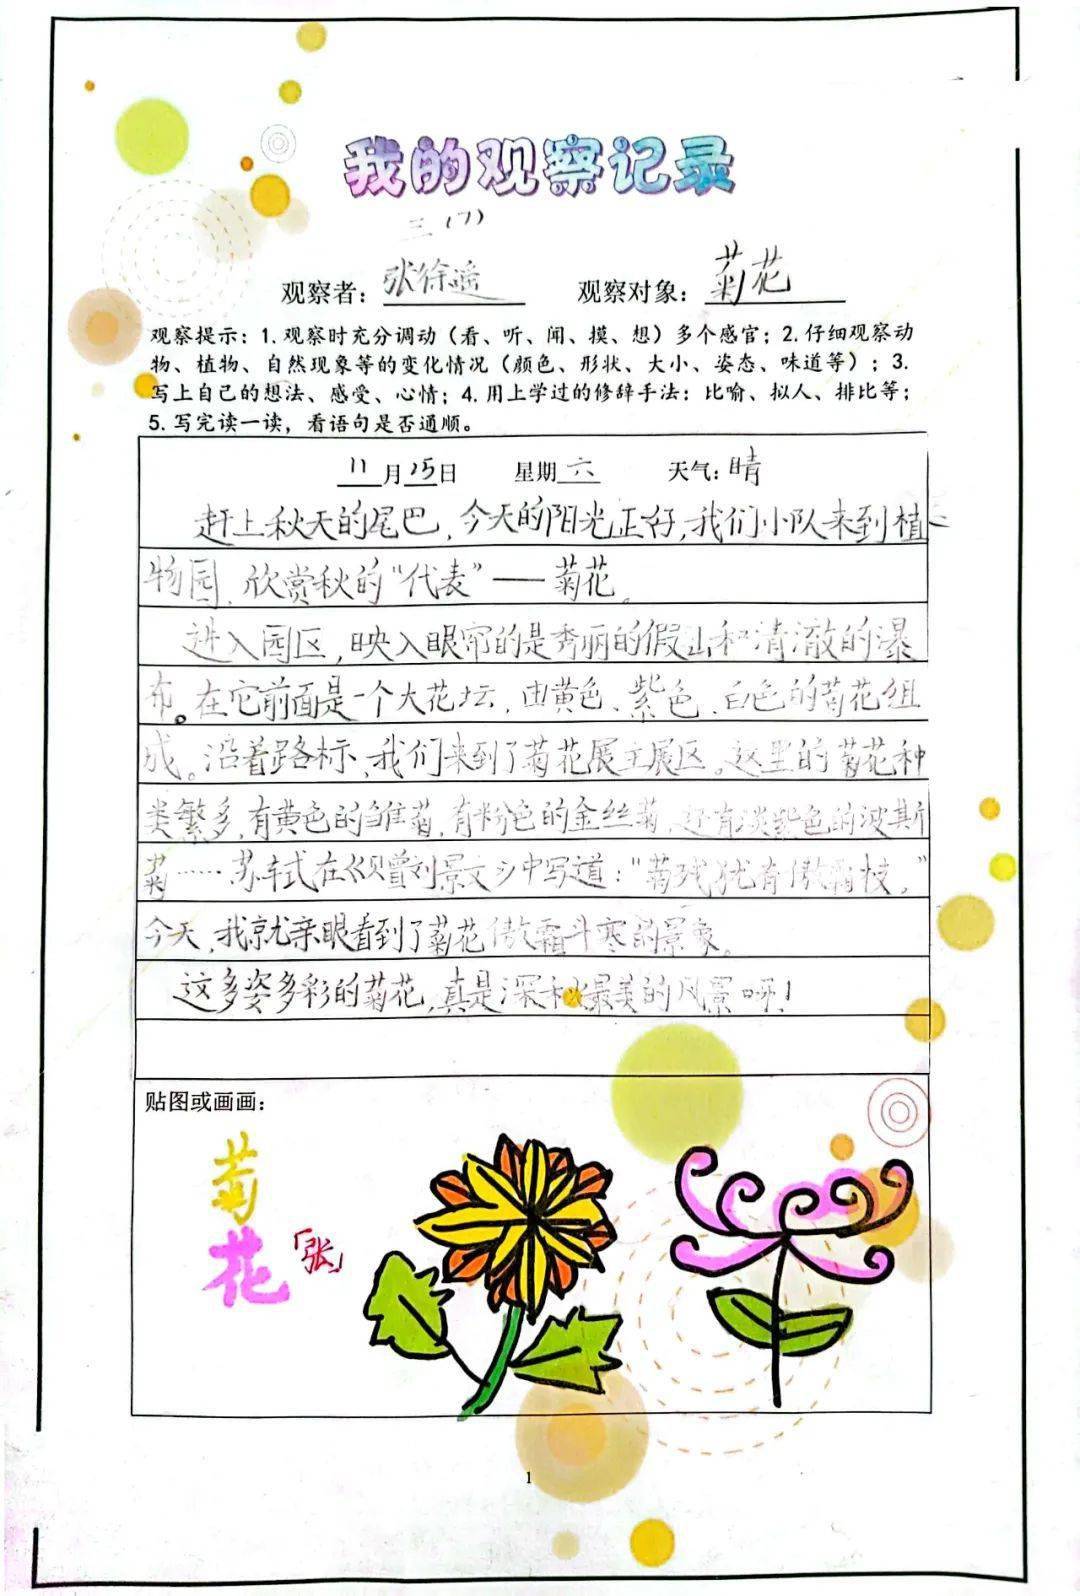 我的观察记录
三(7)
观察者：张徐遥 观察对象：菊花
观察提示：1.观察时充分调动（看、听、闻、摸、想）多个感官；2.仔细观察动
物、植物、自然现象等的变化情况（颜色、形状、大小、姿态、味道等）；3.
写上自己的想法、感受、心情；4.用上学过的修辞手法：比喻、拟人、排比等；
5.写完读一读，看语句是否通顺。
11月15日 星期六 天气：晴
赶上秋天的尾巴，今天的阳光正好，我们小队来到植
物园，欣赏秋的“代表”——菊花。
进入园区，映入眼帘的是秀丽的假山和清澈的瀑
布。在它前面是一个大花坛，由黄色、紫色、白色的菊花组
成。沿着路标，我们来到了菊花展主展区。这里的菊花种
类繁多，有黄色的雏菊，有粉色的金丝菊，还有淡紫色的波斯
菊……苏轼在《赠刘景文》中写道：“菊残犹有傲霜枝。”
今天，我就亲眼看到了菊花傲霜斗寒的景象。
这多姿多彩的菊花，真是深秋最美的风景呀！
贴图或画画：
菊
花
「张」
1